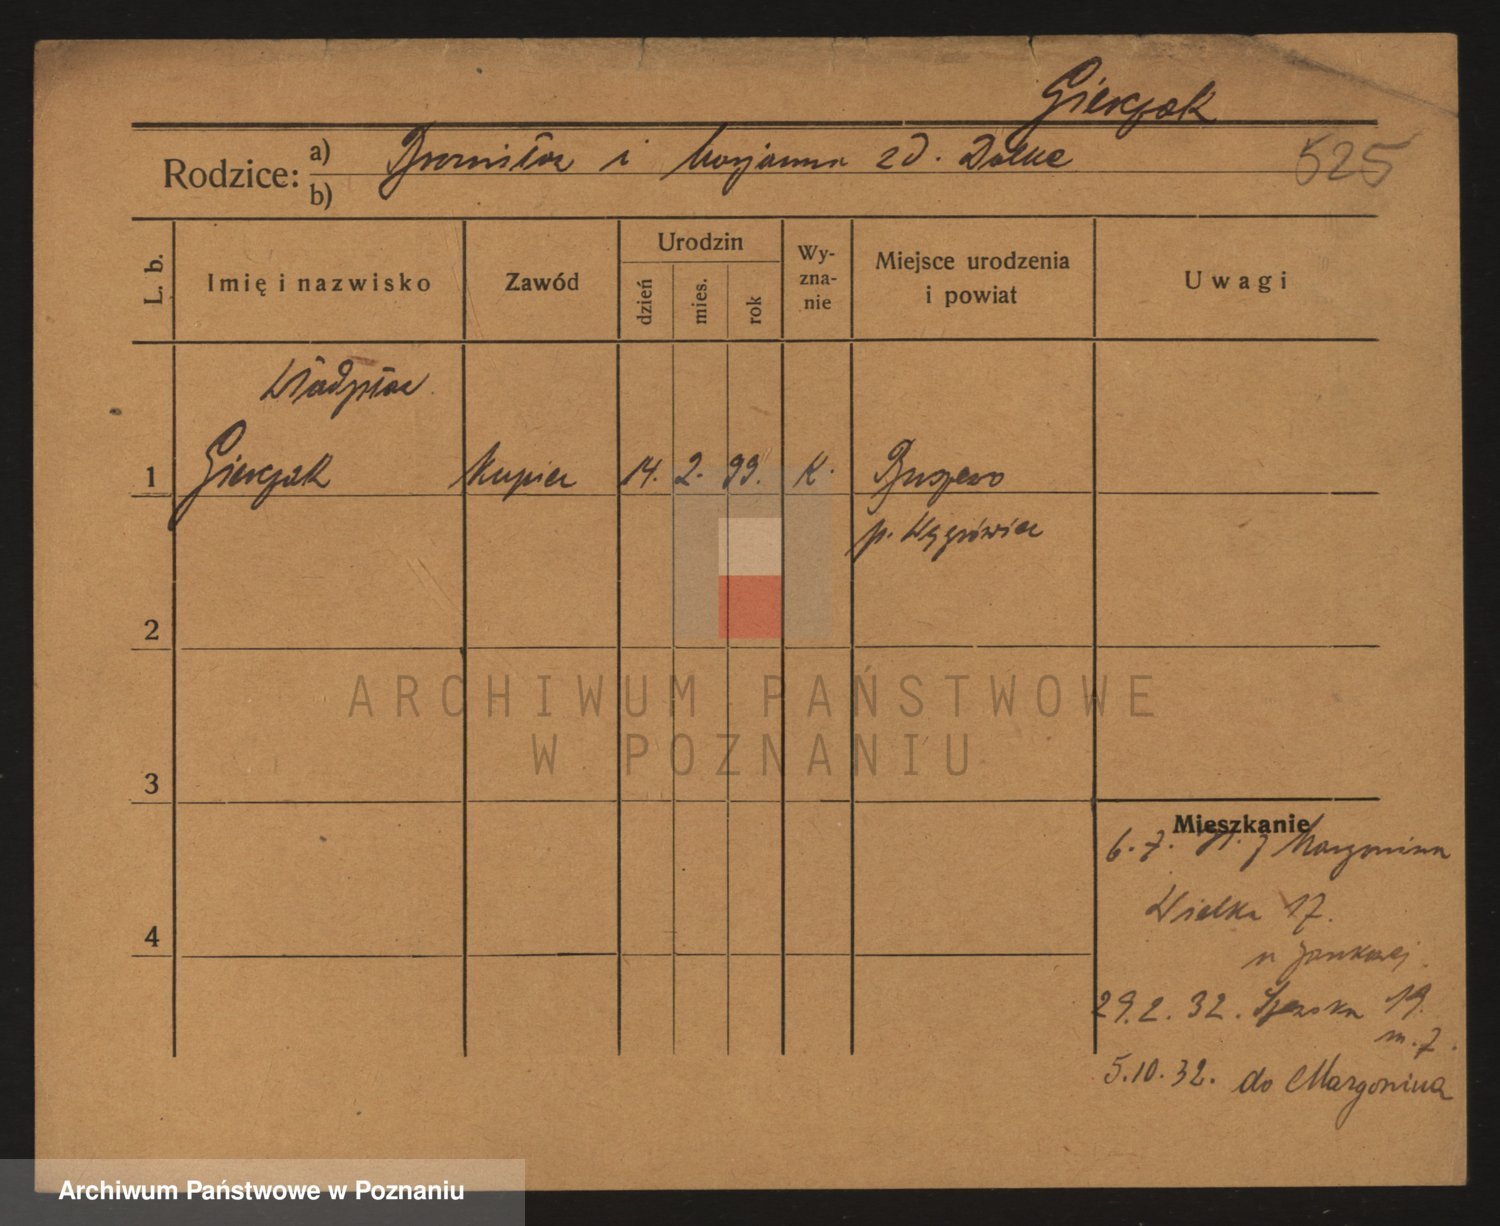 Gierczak
Rodzice: a) Bronisław i Marjanna zd. Dolka
b)
525
L. b. Imię i nazwisko Zawód Urodzin dzień mies. rok Wyznanie Miejsce urodzenia i powiat Uwagi
Władysław
1 Gierczak kupiec 14. 2. 99. K.
p. Wągrówiec
2
3
4
Mieszkanie
6. 7. z Margonina
Wielka 17.
29. 2. 32. 19.
m. 7.
5. 10. 32. do Margonina
ARCHIWUM PAŃSTWOWE
W POZNANIU
Archiwum Państwowe w Poznaniu